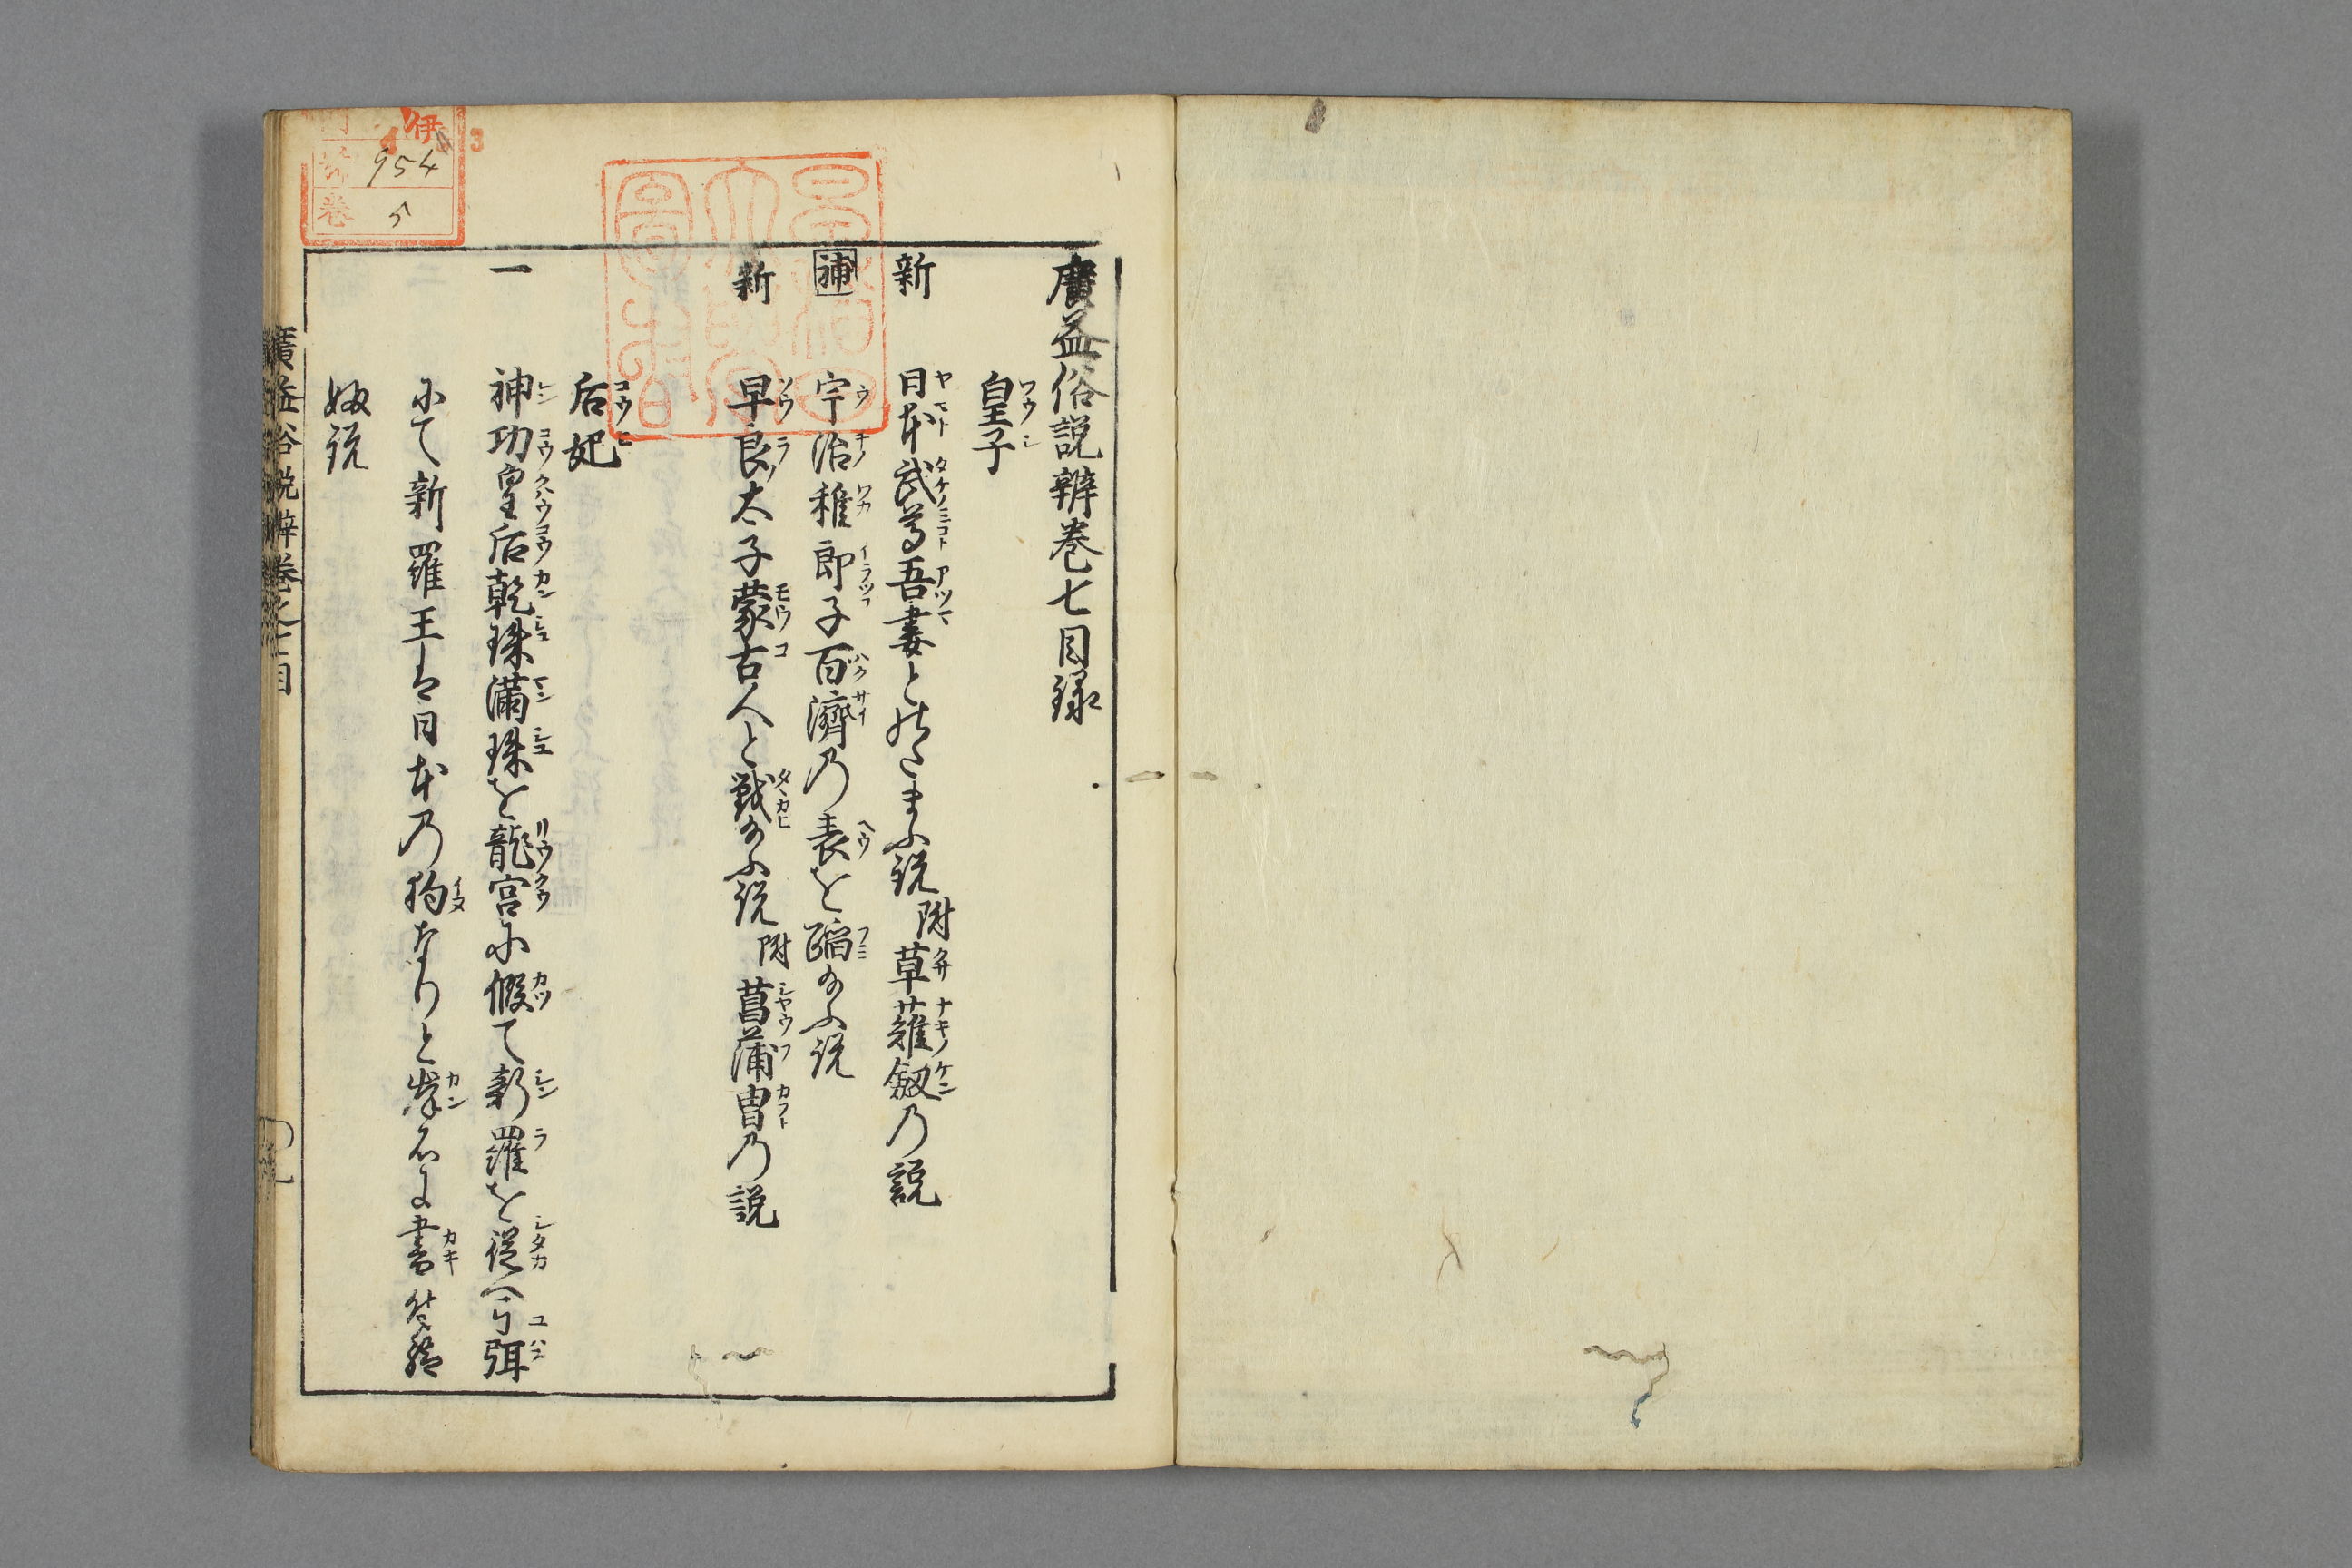 廣益俗説辨巻七目録
皇子
新 日本武尊吾妻とのたまふ説 附草薙劔乃説
補 宇治稚郎子百濟乃表を蹈給ふ説
新 早良太子蒙古人と戦給ふ説 附菖蒲冑乃説
后妃
一 神功皇后乾珠満珠を龍宮に假て新羅を従へ弓弭
にて新羅王は日本乃狗なりと巖石に書付給
ふ説
廣益俗説辨巻之七目
伊
954
5